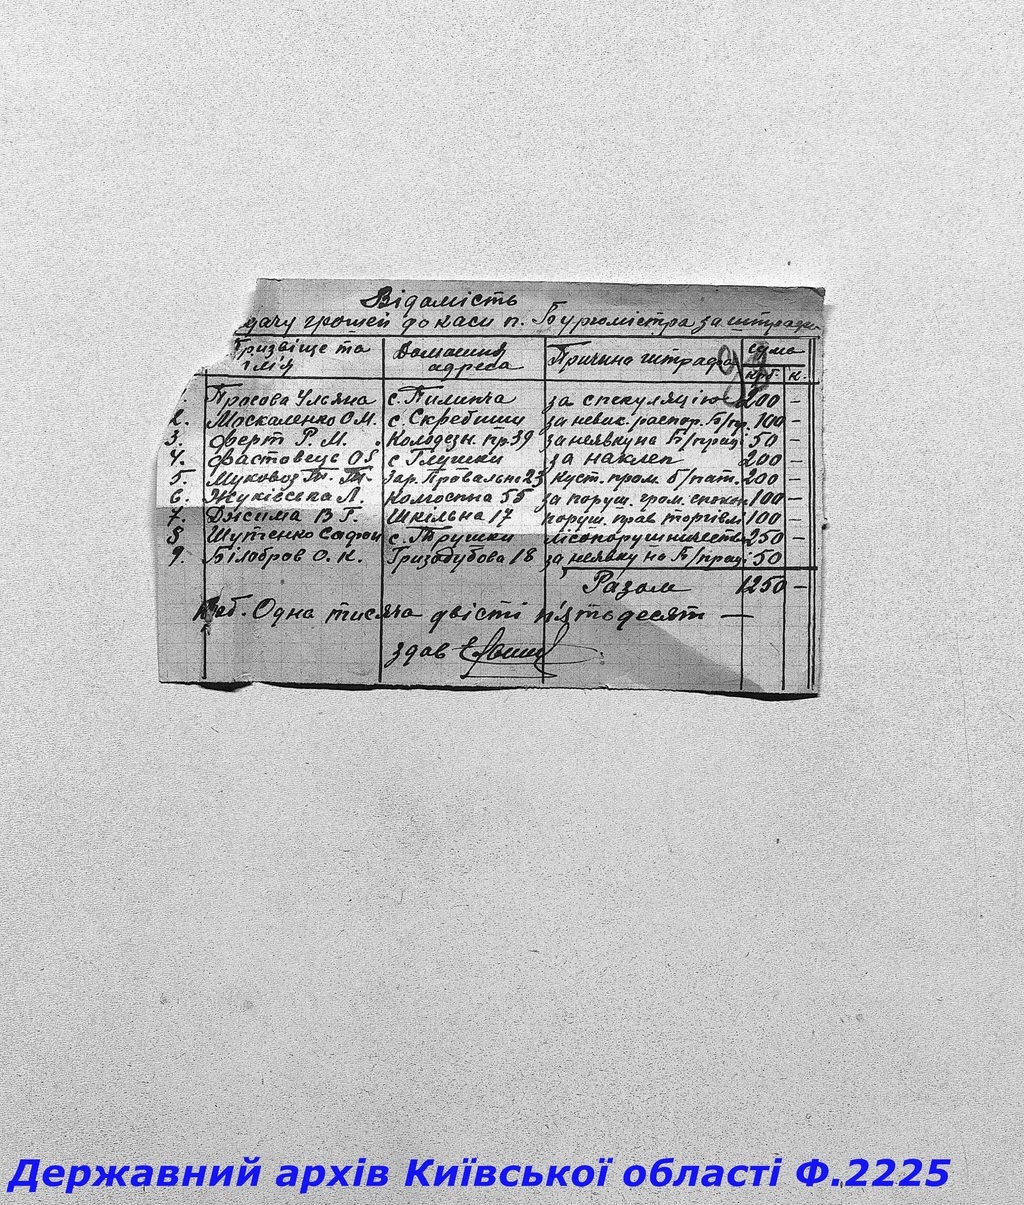 Відамість
дачу грошей до каси п. Бургомістра за штрафи
Прізвіще та імія Домашня адреса Причина штрафа сума
крб. к.
Прасова Уляна с. Пилипча за спекуляцію 200 –
2. Москаленко О М. с. Скребиши за невик. распор. Б/пр. 100 –
3. Ферт Р. М. Колодезн. пр. 39 за неявку на Б/прац. 50 –
4. Фастовець О с Глушки за наклеп 200 –
5. Муковоз Т. Т. Зар. Провальна 23 куст. пром. б/пат. 200 –
6. Жуківська Л. Колгоспна 55 за поруш. гром. спокою 100 –
7. Джима В Г. Шкільна 17 поруш. прав торгівлі 100 –
8 Шутенко Сафон с. Трушки лісопорушничество 250 –
9. Білобров О. К. Гризодубова 18 за неявку на Б/праці 50
Разом 1250 –
Крб. Одна тисяча двісті п'ятьдесят —
здав
Державний архів Київської області Ф.2225